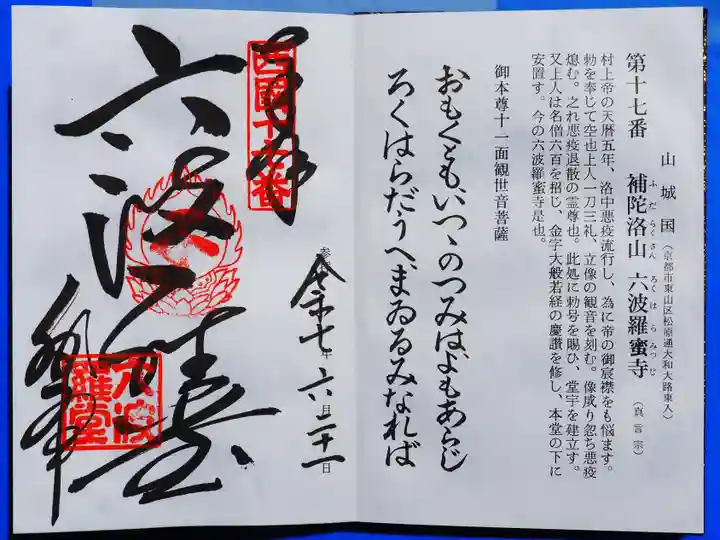 山城国（京都市東山区松原通大和大路東入）
第十七番　補陀洛山　六波羅蜜寺（真言宗）
ふだらくさん　ろくはらみつじ
村上帝の天暦五年、洛中悪疫流行し、為に帝の御宸襟をも悩ます。
勅を奉じて空也上人一刀三礼、立像の観音を刻む。像成り忽ち悪疫
熄む。之れ悪疫退散の霊尊也。此処に勅号を賜ひ、堂宇を建立す。
又上人は名僧六百を招じ、金字大般若経の慶讃を修し、本堂の下に
安置す。今の六波羅蜜寺是也。
御本尊十一面観世音菩薩
おもくとも、いつゝのつみはよもあらじ
ろくはらだうへ、まゐるみなれば
奉拝
西國十七番
六波羅堂
令和七年六月二十一日
六波羅堂